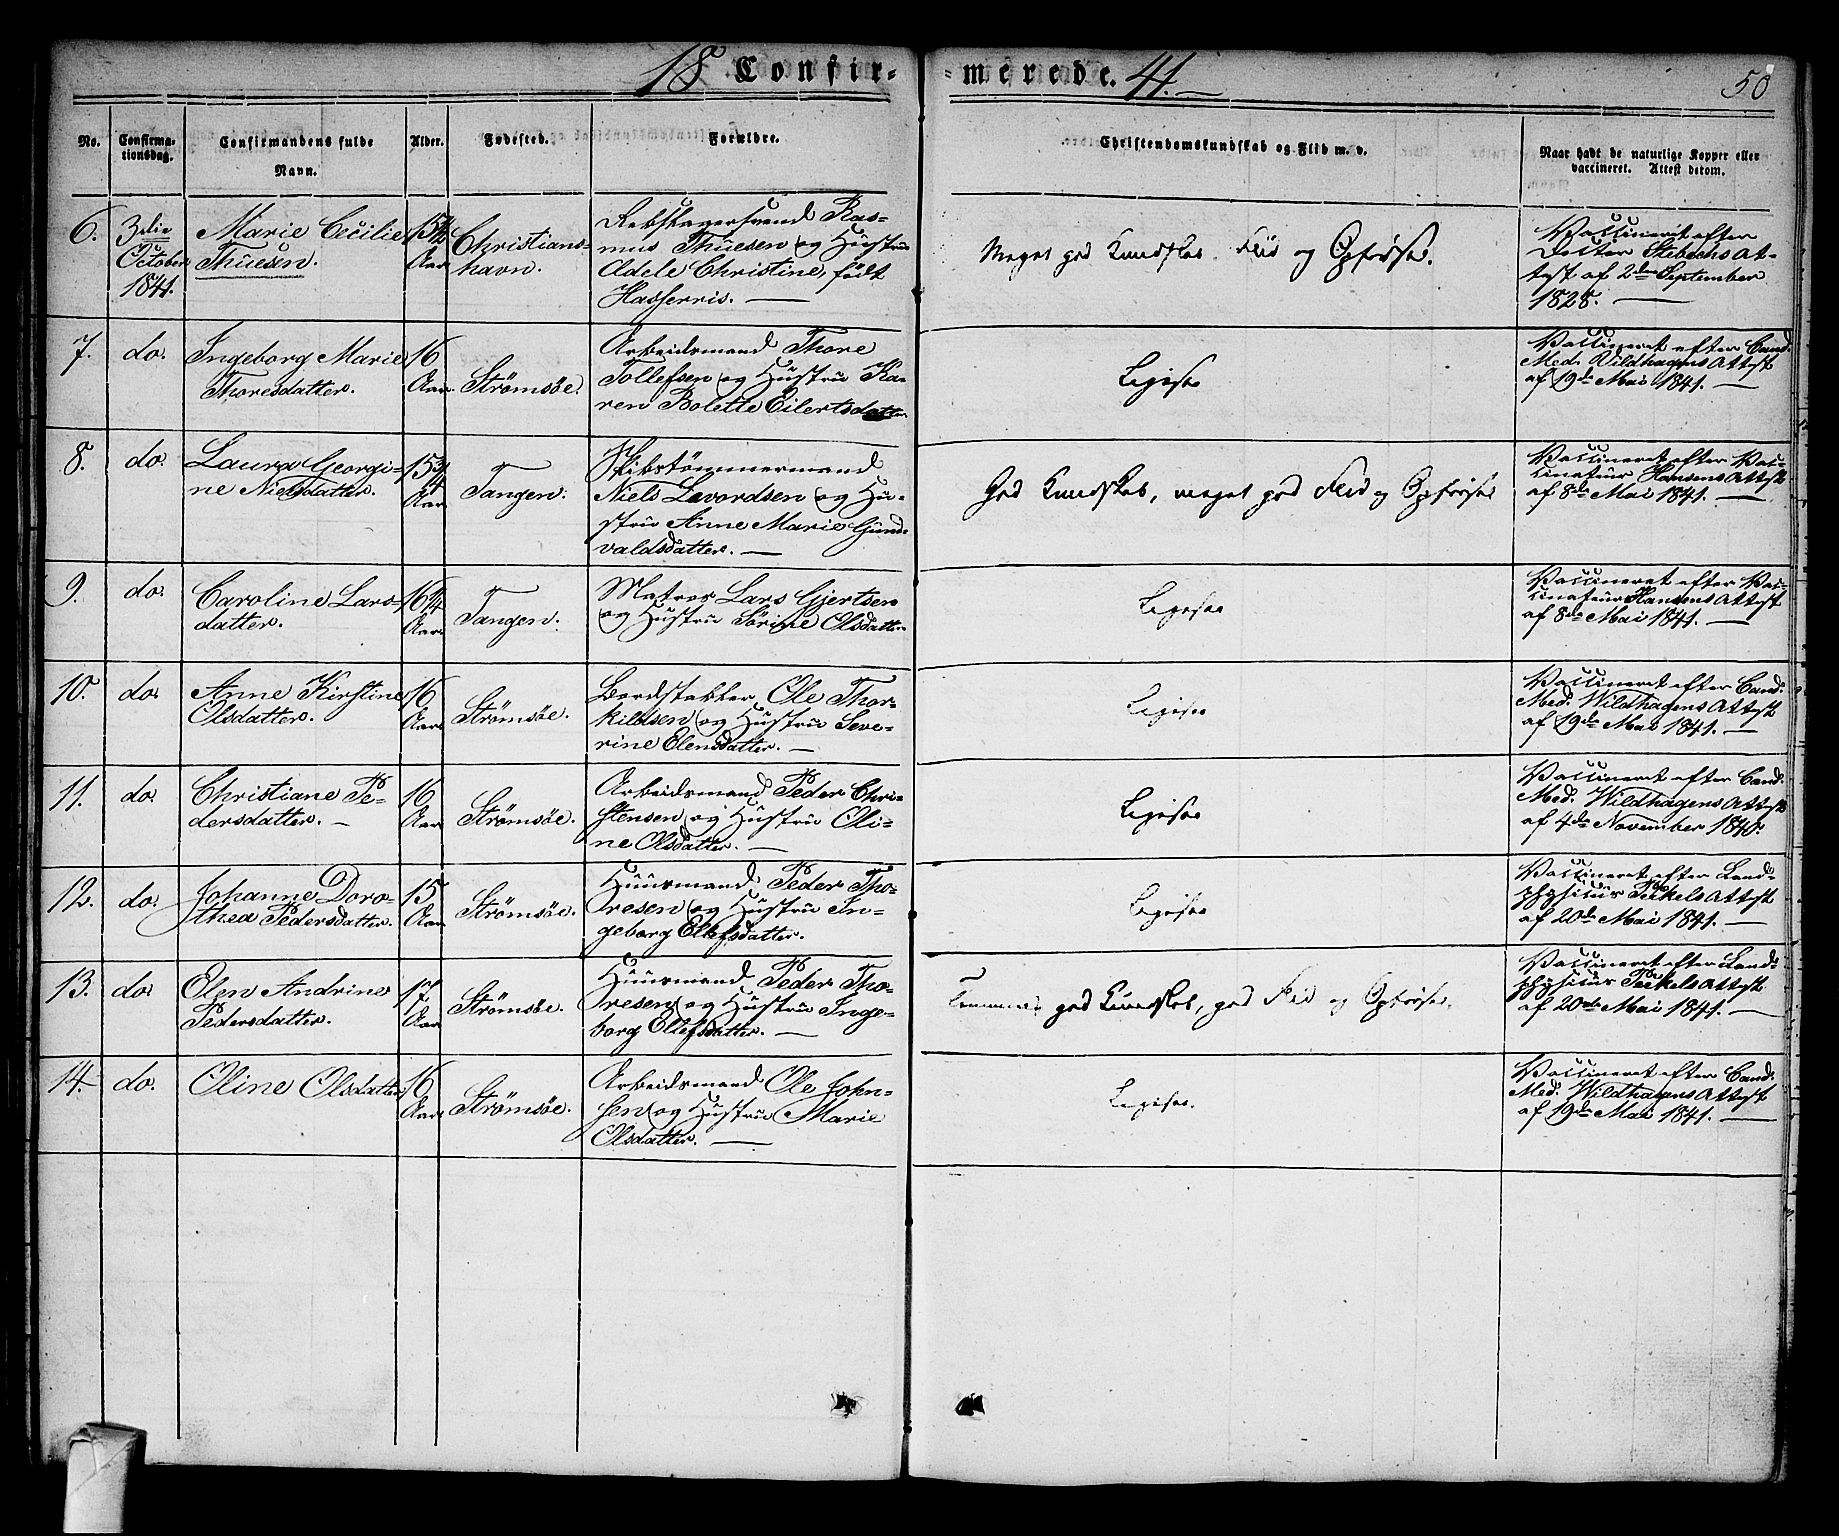 18 Confir-merede. 41.
50
No.
Confirma-
tionsdag.
Confirmandens fulde
Navn.
Alder.
Fødested.
Forældre.
Christendomskundskab og Flid m. v.
Naar havt de naturlige Kopper eller
vaccineret. Attest derom.
6.
3die
October
1841.
Marie Cecilie
Thuesen.
15½
Aar
Christians-
havn.
Rebslagersvend Ras-
mus Thuesen og Hustru
Adele Christine, født
Hasferris.
Meget god Kundskab. Flid og Opførsel.
Vaccineret efter
Doctor Stibechs At-
test af 2den September
1828.
7.
do.
Ingeborg Marie
Thoresdatter.
16
Aar
Strömsöe.
Arbeidsmand Thore
Tollefsen og Hustru Ka-
ren Bolette Eilertsdatter
Ligesaa
Vaccineret efter Cand.
Med. Wildhagens Attest
af 19de Mai 1841.
8.
do.
Laura Georgi-
ne Nielsdatter.
15¾
Aar
Tangen.
Skibstømmermand
Niels Levordsen og Hu-
stru Anne Marie Gund-
valdsdatter.
God Kundskab, meget god Flid og Opførsel
Vaccineret efter Vac-
cinateur Hansens Attest
af 8de Mai 1841.
9.
do.
Caroline Lars-
datter.
16¼
Aar
Tangen.
Matros Lars Gjertsen
og Hustru Sörine Olsdatter
Ligesaa
Vaccineret efter Vac-
cinateur Hansens Attest
af 8de Mai 1841.
10.
do.
Anne Kirstine
Olsdatter.
16
Aar
Strömsöe.
Bordstabler Ole Thor-
kildsen og Hustru Seve-
rine Elensdatter.
Ligesaa
Vaccineret efter Cand.
Med. Wildhagens Attest
af 19de Mai 1841.
11.
do.
Christiane Pe-
dersdatter.
16
Aar
Strömsöe.
Arbeidsmand Peder Chri-
stensen og Hustru Oli-
ne Olsdatter.
Ligesaa
Vaccineret efter Cand.
Med. Wildhagens Attest
af 4de November 1840.
12.
do.
Johanne Doro-
thea Pedersdatter.
15
Aar
Strömsöe.
Huusmand Peder Tho-
resen og Hustru In-
geborg Ellefsdatter.
Ligesaa
Vaccineret efter Land-
physicus Peckels Attest
af 20de Mai 1841.
13.
do.
Olen Andrine
Pedersdatter.
17
Aar
Strömsöe.
Huusmand Peder Tho-
resen og Hustru Inge-
borg Ellefsdatter.
Temmelig god Kundskab, god Flid og Opførsel.
Vaccineret efter Land-
physicus Peckels Attest
af 20de Mai 1841.
14.
do.
Oline Olsdatter
16
Aar
Strömsöe.
Arbeidsmand Ole John-
sen og Hustru Marie
Olsdatter.
Ligesaa.
Vaccineret efter Cand.
Med. Wildhagens Attest
af 19de Mai 1841.